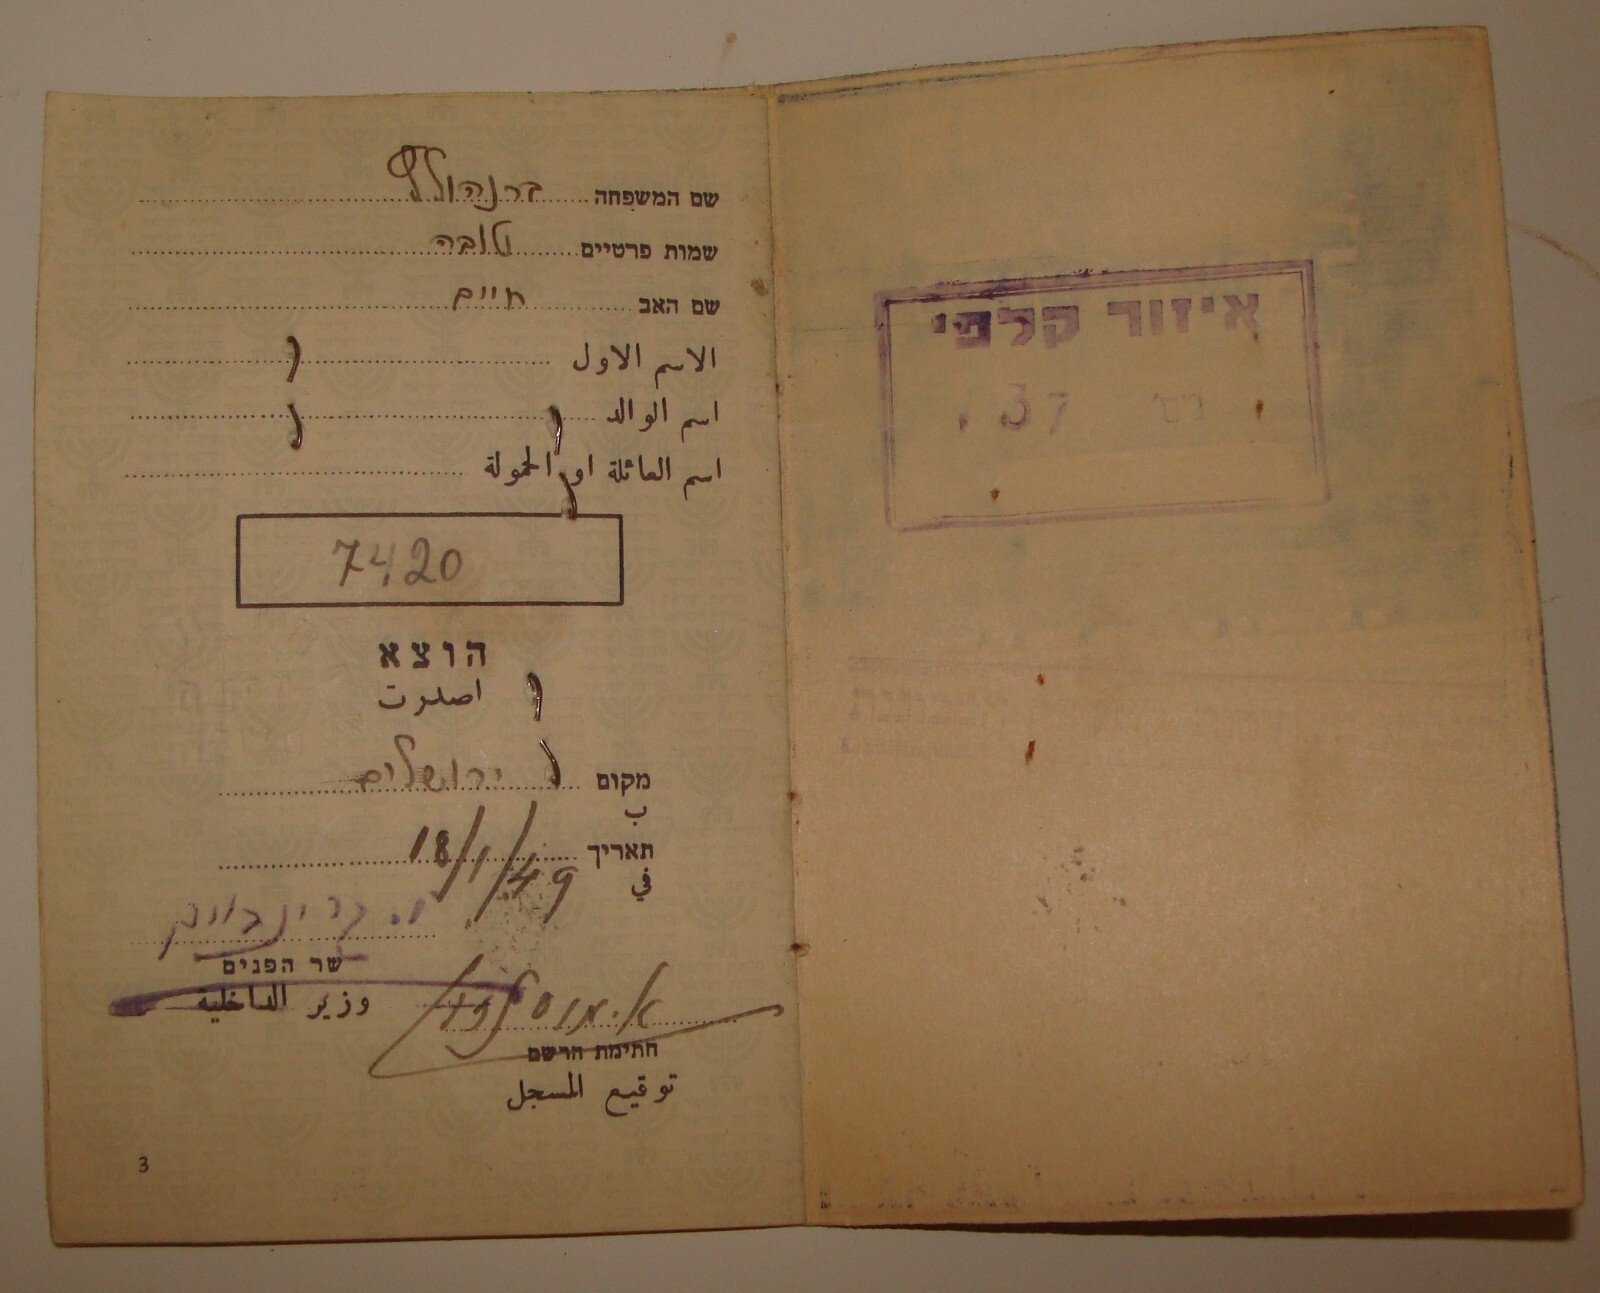 שם המשפחה ברנהולץ
שמות פרטיים טובה
שם האב חיים
الاسم الاول
اسم الوالد
اسم العائلة او الحمولة
7420
הוצא
اصدرت
מקום ירושלים
ب
תאריך 18/1/49
في
י. גרינבוים
שר הפנים
وزير الداخلية
א.
חתימת הרשם
توقيع المسجل
3
איזור קלפי
מס' 37